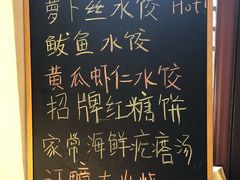 萝卜丝水饺 Hot!
鲅鱼水饺
黄瓜虾仁水饺
招牌红糖饼
家常海鲜疙瘩汤